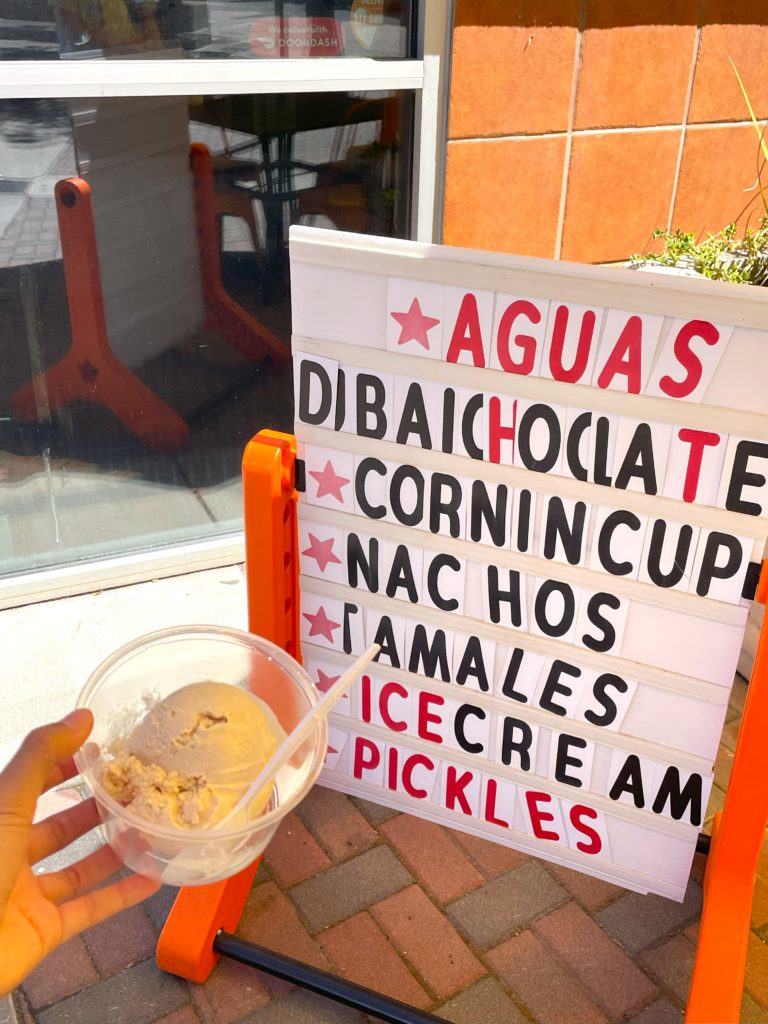 We deliver with
DOORDASH
★ AGUAS
DIBAICHOCLATE
★ CORNINCUP
★ NACHOS
★ TAMALES
★ ICECREAM
★ PICKLES